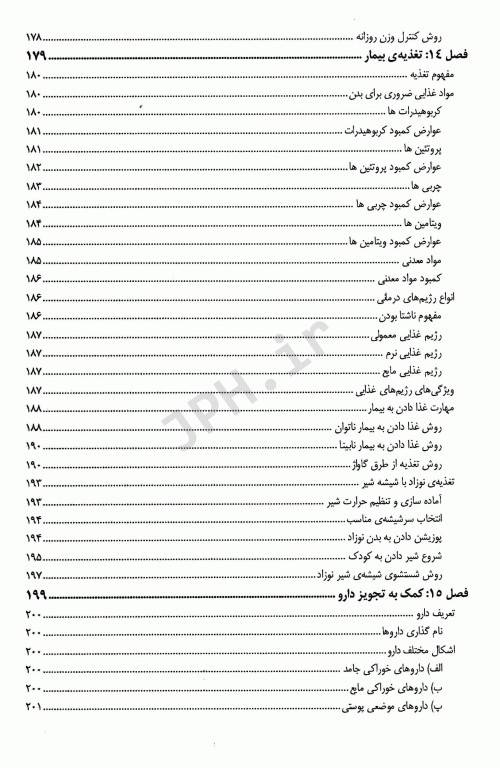 روش کنترل وزن روزانه ........ ۱۷۸
فصل ۱۴: تغذیه‌ی بیمار ........ ۱۷۹
مفهوم تغذیه ........ ۱۸۰
مواد غذایی ضروری برای بدن ........ ۱۸۰
کربوهیدرات ها ........ ۱۸۰
عوارض کمبود کربوهیدرات ........ ۱۸۱
پروتئین ها ........ ۱۸۱
عوارض کمبود پروتئین ها ........ ۱۸۲
چربی ها ........ ۱۸۳
عوارض کمبود چربی ها ........ ۱۸۴
ویتامین ها ........ ۱۸۴
عوارض کمبود ویتامین ها ........ ۱۸۵
مواد معدنی ........ ۱۸۵
کمبود مواد معدنی ........ ۱۸۶
انواع رژیم‌های درمانی ........ ۱۸۶
مفهوم ناشتا بودن ........ ۱۸۶
رژیم غذایی معمولی ........ ۱۸۷
رژیم غذایی نرم ........ ۱۸۷
رژیم غذایی مایع ........ ۱۸۷
ویژگی‌های رژیم‌های غذایی ........ ۱۸۷
مهارت غذا دادن به بیمار ........ ۱۸۸
روش غذا دادن به بیمار ناتوان ........ ۱۸۸
روش غذا دادن به بیمار نابینا ........ ۱۹۰
روش تغذیه از طرق گاواژ ........ ۱۹۰
تغذیه‌ی نوزاد با شیشه شیر ........ ۱۹۳
آماده سازی و تنظیم حرارت شیر ........ ۱۹۳
انتخاب سرشیشه‌ی مناسب ........ ۱۹۴
پوزیشن دادن به بدن نوزاد ........ ۱۹۴
شروع شیر دادن به کودک ........ ۱۹۵
روش شستشوی شیشه‌ی شیر نوزاد ........ ۱۹۷
فصل ۱۵: کمک به تجویز دارو ........ ۱۹۹
تعریف دارو ........ ۲۰۰
نام گذاری داروها ........ ۲۰۰
اشکال مختلف دارو ........ ۲۰۰
الف) داروهای خوراکی جامد ........ ۲۰۰
ب) داروهای خوراکی مایع ........ ۲۰۰
پ) داروهای موضعی پوستی ........ ۲۰۱
JPH.ir